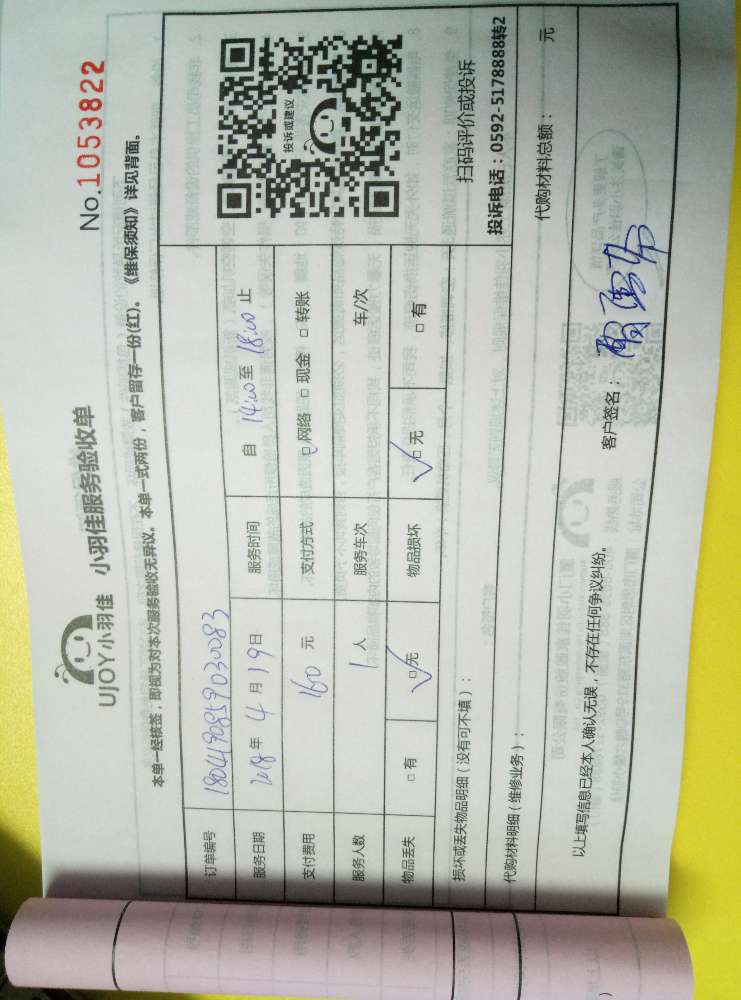 No.1053822
UJOY小羽佳 小羽佳服务验收单
本单一经核签，即视为对本次服务验收无异议。本单一式两份，客户留存一份(红)。《维保须知》详见背面。
订单编号 1804190859030083
服务日期 2018年 4月 19日 服务时间 自 14:00至 18:00止
支付费用 160 元 支付方式 □网络 □现金 □转账
服务人数 1人 服务车次 车/次
物品丢失 □有 □无 物品损坏 □无 □有
投诉或建议
扫码评价或投诉
投诉电话：0592-5178888转2
损坏或丢失物品明细（没有可不填）：
代购材料明细（维修业务）： 代购材料总额： 元
以上填写信息已经本人确认无误，不存在任何争议纠纷。 客户签名：